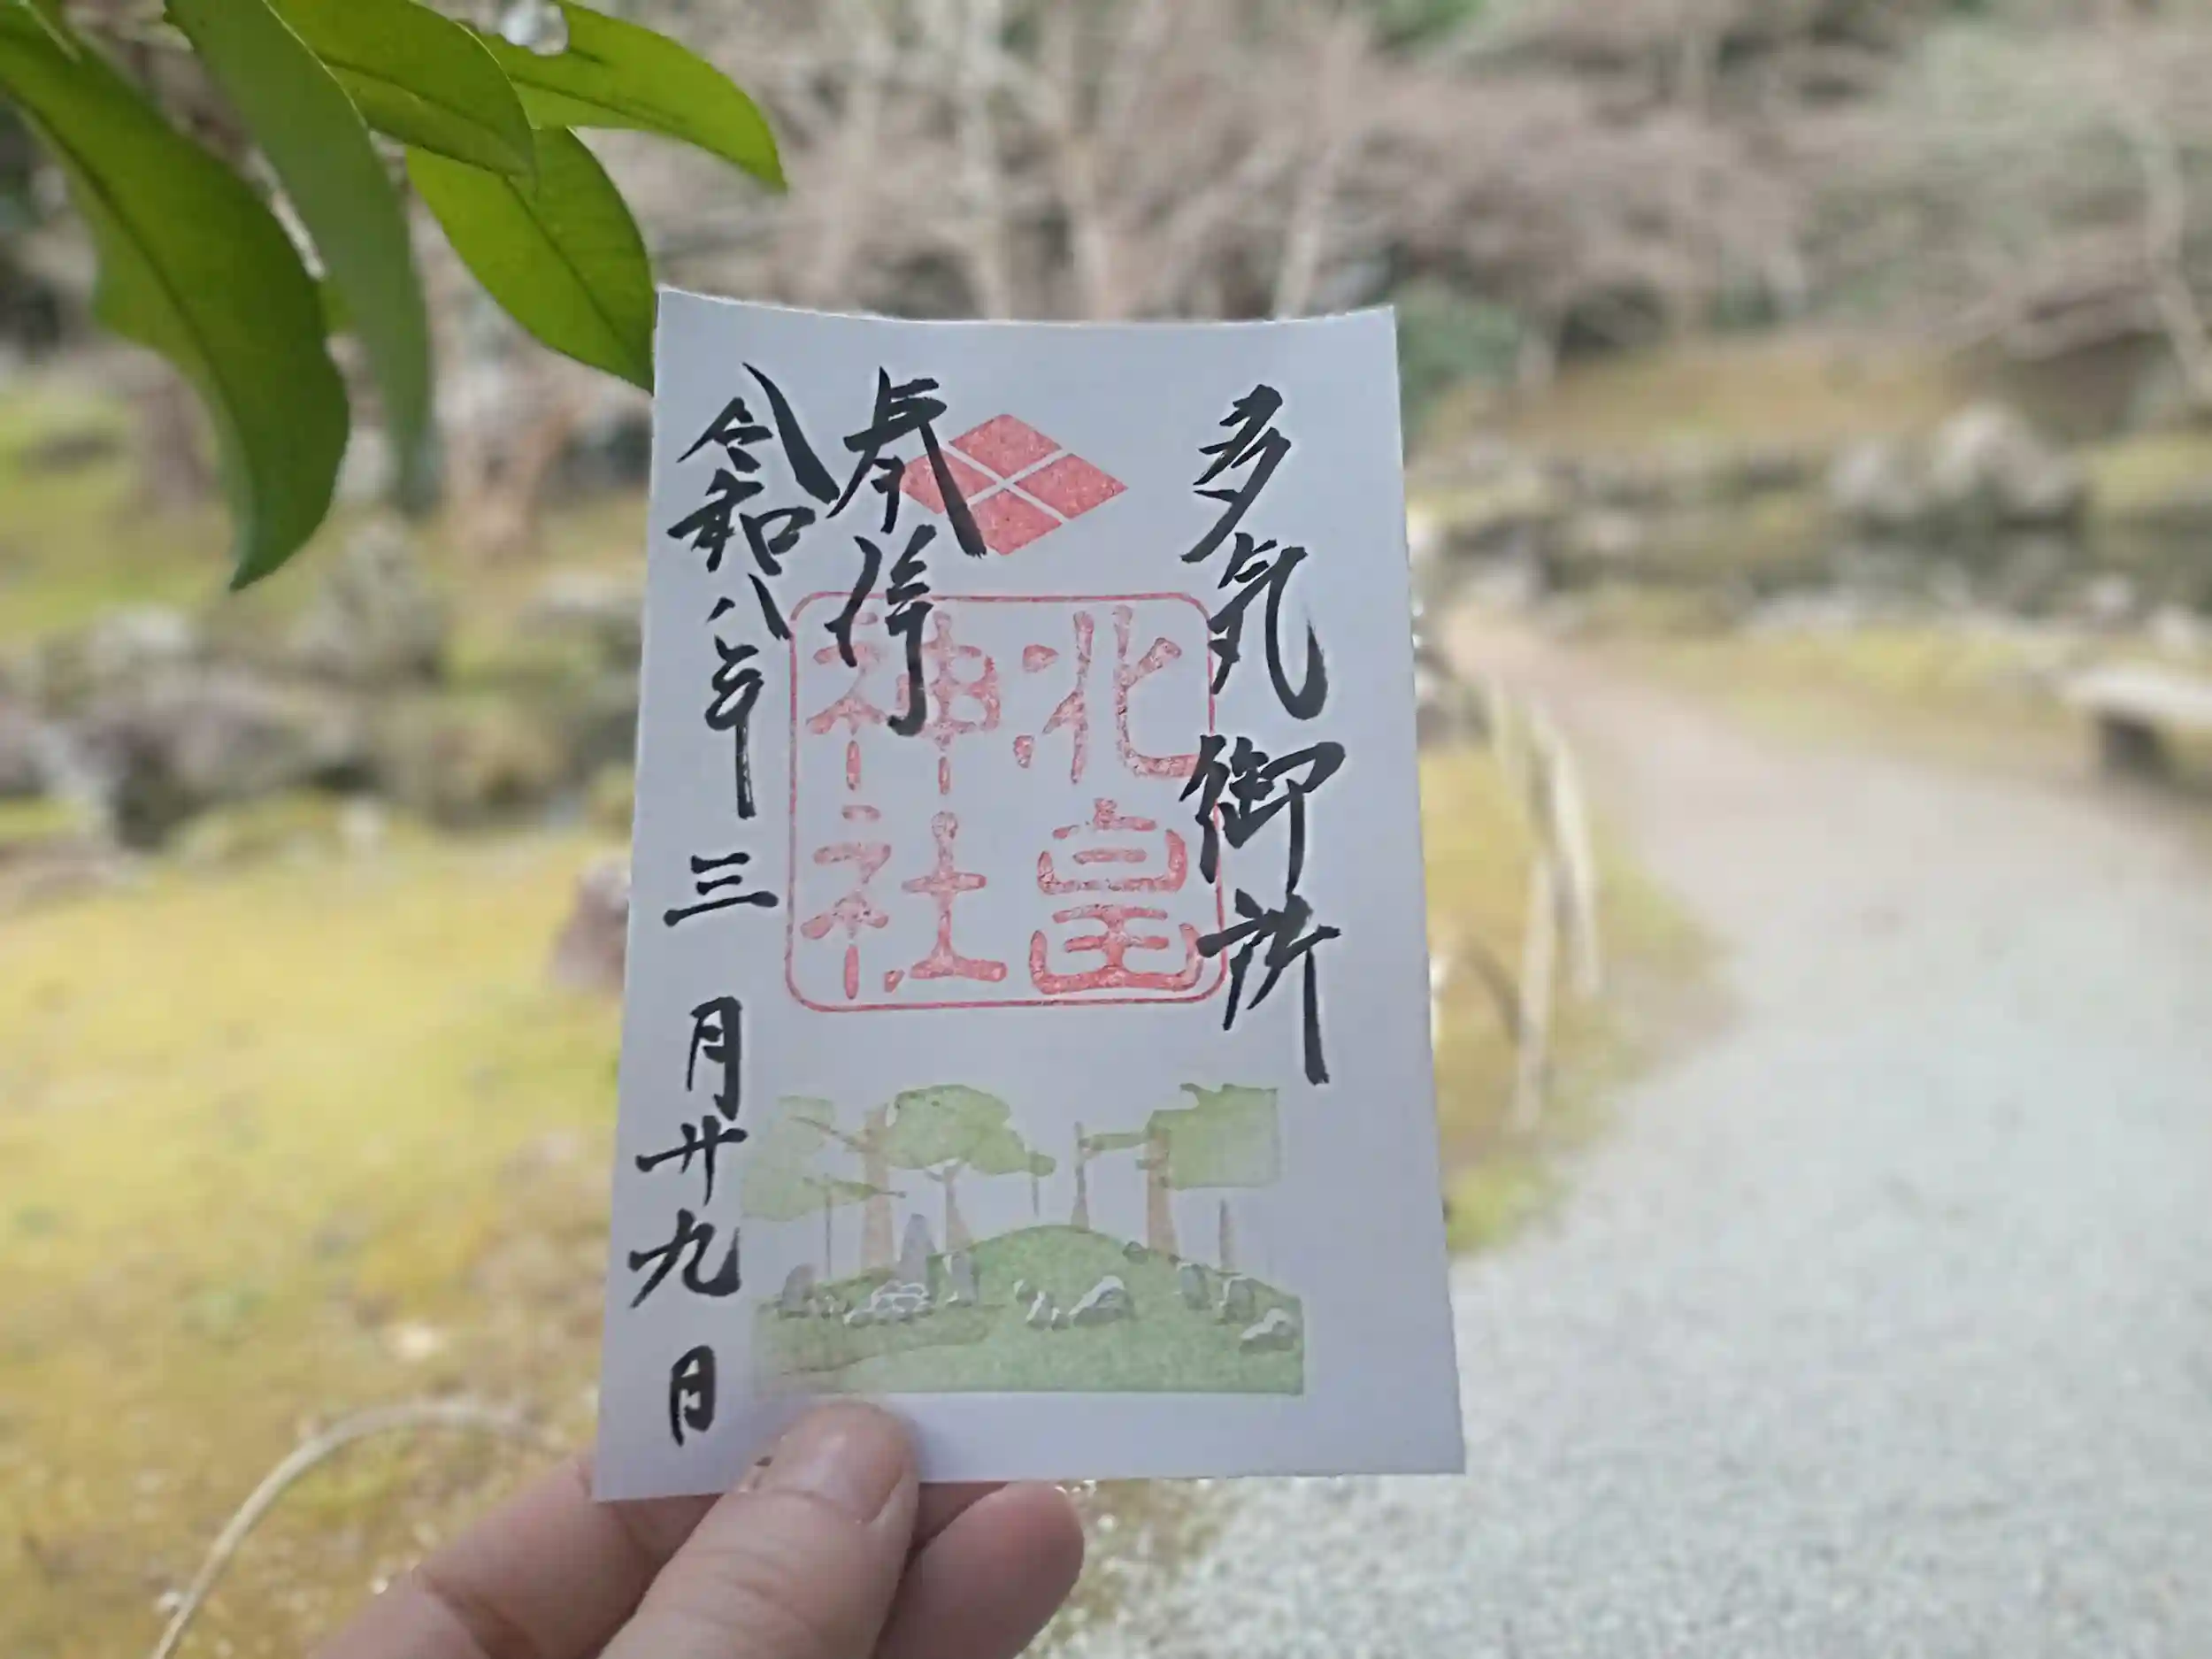 多気御所
北畠
神社
奉拝
令和八年三月廿九日